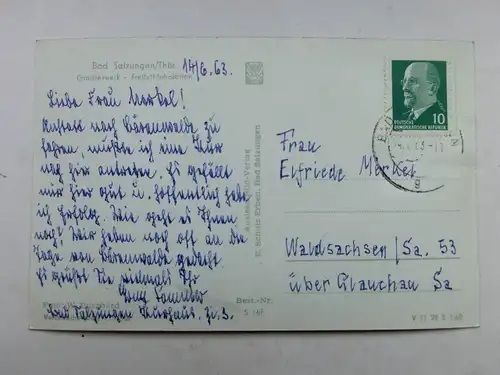 Bad Salzungen/Thür.
Gradierwerk - Freiluftinhalation
14/6.63.
Liebe Frau Merkel!
Anstatt nach Bärenwalde zu
fahren mußte ich eine Kur
nach hier antreten. Es gefällt
mir hier gut u. hoffentlich habe
ich Erfolg. Wie geht es Ihnen
noch? Wir haben noch oft an die
Tage von Bärenwalde gedacht
Es grüßt Sie vielmals Ihr
Bad Salzungen Kurhaus. Zi. 3.
Best.-Nr.
S 167
Auslese-Bild-Verlag
E. Scholz Erben, Bad Salzungen
10
DEUTSCHE
DEMOKRATISCHE REPUBLIK
Frau
Elfriede Merkel
Waldsachsen/Sa. 53
über Glauchau Sa